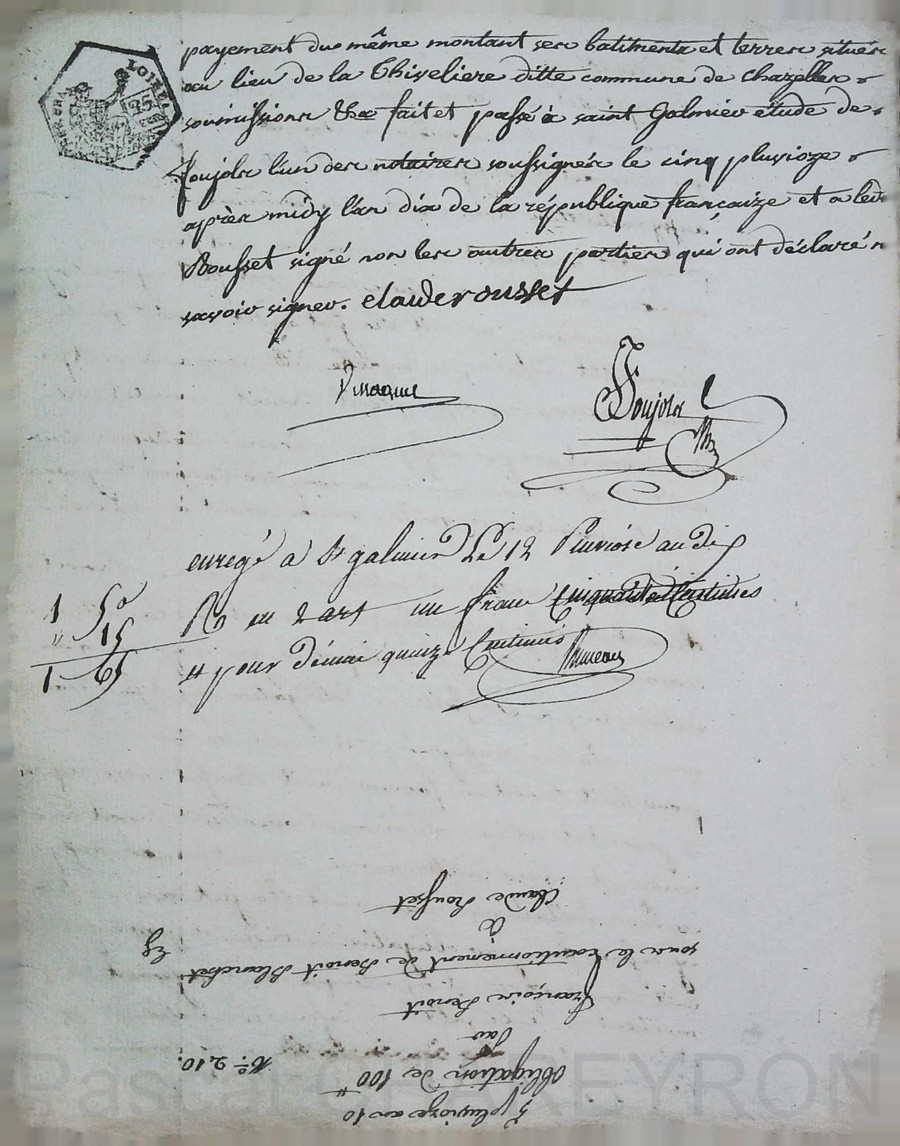 LOIRE
25
payement du même montant ses batiments et terres situés
au lieu de la Thiveliere ditte commune de chazelles
soumissions &ce fait et passé à saint Galmier étude de
Poujols l'un des notaires soussignés le cinq pluvioze
après midy l'an dix de la république françaize et a led
Rousset signé non les autres parties qui ont déclaré n
savoir signer. claude rousset
Poujols
enregé a St galmier Le 12 Pluviose an dix
1 50
Ro en 2 art un franc Cinquante Centimes
" 15
1 65
et pour décime quinze Centimes
5 pluvioze an 10
obligation de 100 tt
No. 210.
Par
François Benoit
sous le cautionnement de Benoit Blanchet
à
Claude Rousset
Pascal CHAREYRON